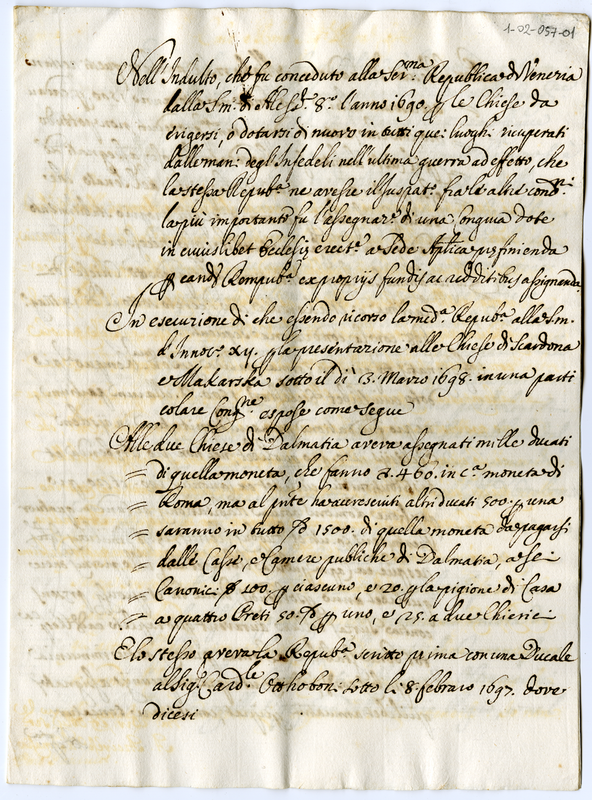 1-02-057-01
Nell'Indulto, che fu conceduto alla Ser.ma Republica di Venezia
dalla S.m. di Aless.º 8.º l'anno 1690. p le Chiese da
erigersi, o dotarsi di nuovo in tutti que: luoghi ricuperati
dalle man: degl'Infedeli nell'ultima guerra ad effetto, che
la stessa Repub.a ne avesse il Juspat.º fra le altre cond.ni
la più importante fu l'assegnar.e di una congrua dote
in cuiuslibet Ecclesię erect.e a Sede Aplica pręfinienda
p eand. Rempub.a ex proprijs fundis ac redditibus assignanda.
In esecuzione di che essendo ricorso la med.a Repub.a alla S.m.
d'Innoc.º XII. p la presentazione alle Chiese di Scardona
e Makarska sotto il dì 3. Marzo 1698. in una parti
colare Cong.ne espose come segue
Alle due Chiese di Dalmatia aveva assegnati mille ducati
= di quella moneta, che fanno 460. in c.a moneta di
= Roma, ma al pñte ha accresciuti altri ducati 500. p una
= saranno in tutto 1500. di quella moneta da pagarsi
= dalle Casse, e Camere publiche di Dalmatia, a sei
= Canonici 100. p ciascuno, e 20. p la pigione di Casa
= a quattro Preti 50. p uno, e 25. a due Chierici
E lo stesso aveva la Repub.a scritto prima con una Ducale
al Sig. Card.le Otthobon: sotto li 8. febraro 1697. dove
dicesi